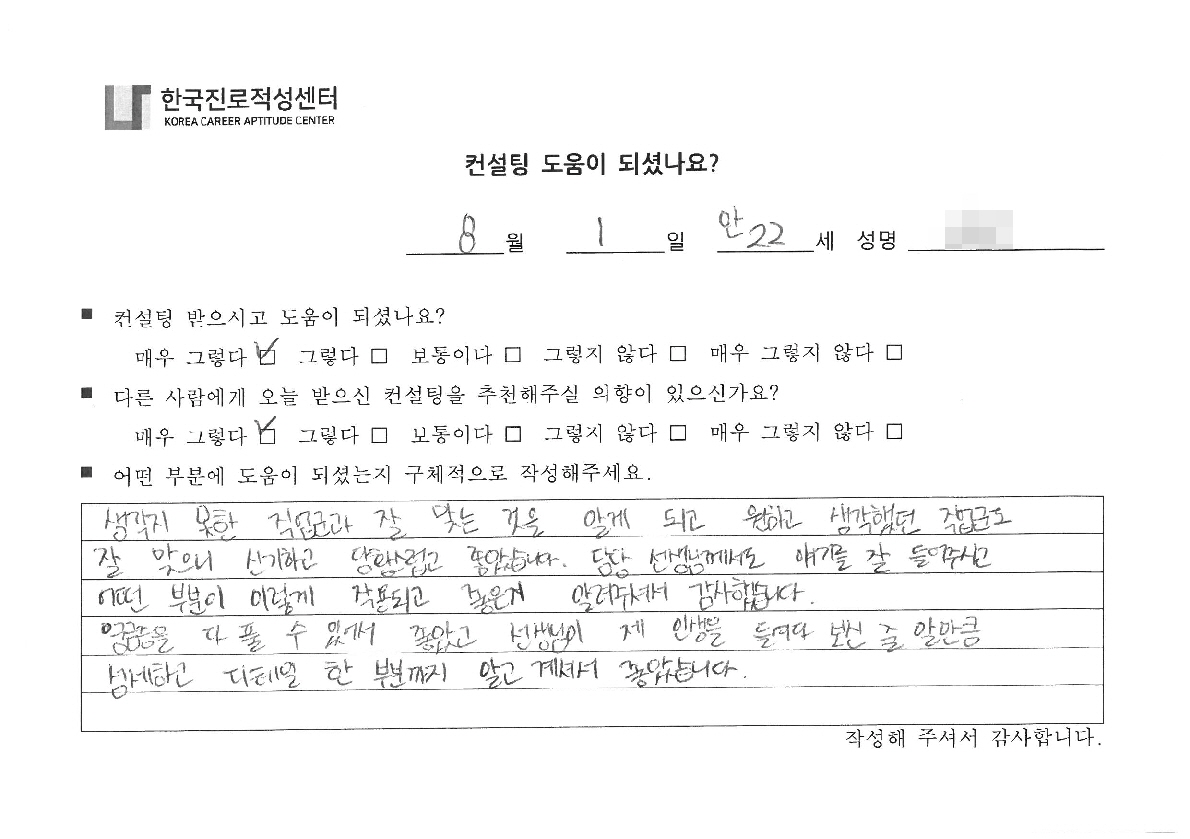 한국진로적성센터
KOREA CAREER APTITUDE CENTER
컨설팅 도움이 되셨나요?
8 월 1 일 만22 세 성명
■ 컨설팅 받으시고 도움이 되셨나요?
매우 그렇다 ☑ 그렇다 □ 보통이다 □ 그렇지 않다 □ 매우 그렇지 않다 □
■ 다른 사람에게 오늘 받으신 컨설팅을 추천해주실 의향이 있으신가요?
매우 그렇다 ☑ 그렇다 □ 보통이다 □ 그렇지 않다 □ 매우 그렇지 않다 □
■ 어떤 부분에 도움이 되셨는지 구체적으로 작성해주세요.
생각지 못한 직업군과 잘 맞는 것을 알게 되고 원하고 생각했던 직업군도
잘 맞으니 신기하고 당황스럽고 좋았습니다. 담당 선생님께서도 얘기를 잘 들어주시고
어떤 부분이 이렇게 작용되고 좋은지 알려주셔서 감사했습니다.
궁금증을 다 풀 수 있어서 좋았고 선생님이 제 인생을 들여다 보신 줄 알만큼
섬세하고 디테일 한 부분까지 알고 계셔서 좋았습니다.
작성해 주셔서 감사합니다.